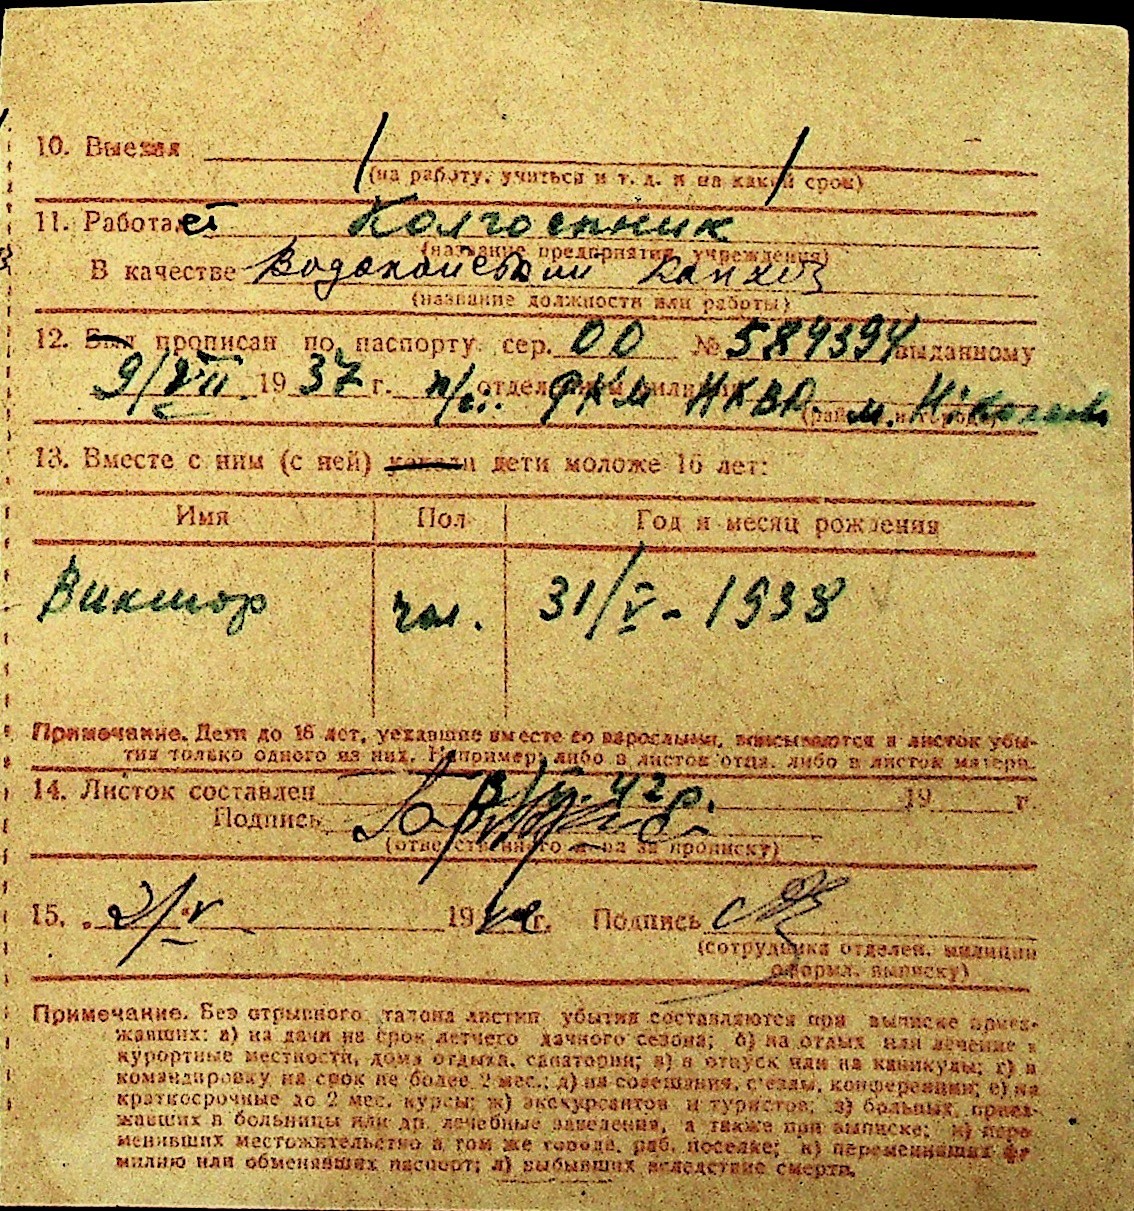 10. Выехал
(на работу, учиться и т. д. и на какой срок)
11. Работает Колгоспник
(название предприятия, учреждения)
В качестве
(название должности или работы)
12. Был прописан по паспорту сер. 00 № 584394 выданному
9/VII 1937 г. отделением милиции ФКМ НКВД м.
13. Вместе с ним (с ней) дети моложе 16 лет:
Имя Пол Год и месяц рождения
Виктор чол. 31/V - 1938
Примечание. Дети до 16 лет, уехавшие вместе со взрослыми, вписываются в листок убы-
тия только одного из них. Например: либо в листок отца, либо в листок матери.
14. Листок составлен 42 р. 19 г.
Подпись
(ответственного лица за прописку)
15. 2/V 19 г. Подпись
(сотрудника отделен. милиции
оформл. выписку)
Примечание. Без отрывного талона листки убытия составляются при выписке приез-
жавших: а) на дачи на срок летнего дачного сезона; б) на отдых или лечение в
курортные местности, дома отдыха, санатории; в) в отпуск или на каникулы; г) в
командировку на срок не более 2 мес.; д) на совещания, съезды, конференции; е) на
краткосрочные до 2 мес. курсы; ж) экскурсантов и туристов; з) больных, приез-
жавших в больницы или др. лечебные заведения, а также при выписке; и) пере-
менивших местожительство в том же городе, раб. поселке; к) переменивших фа-
милию или обменявших паспорт; л) выбывших вследствие смерти.